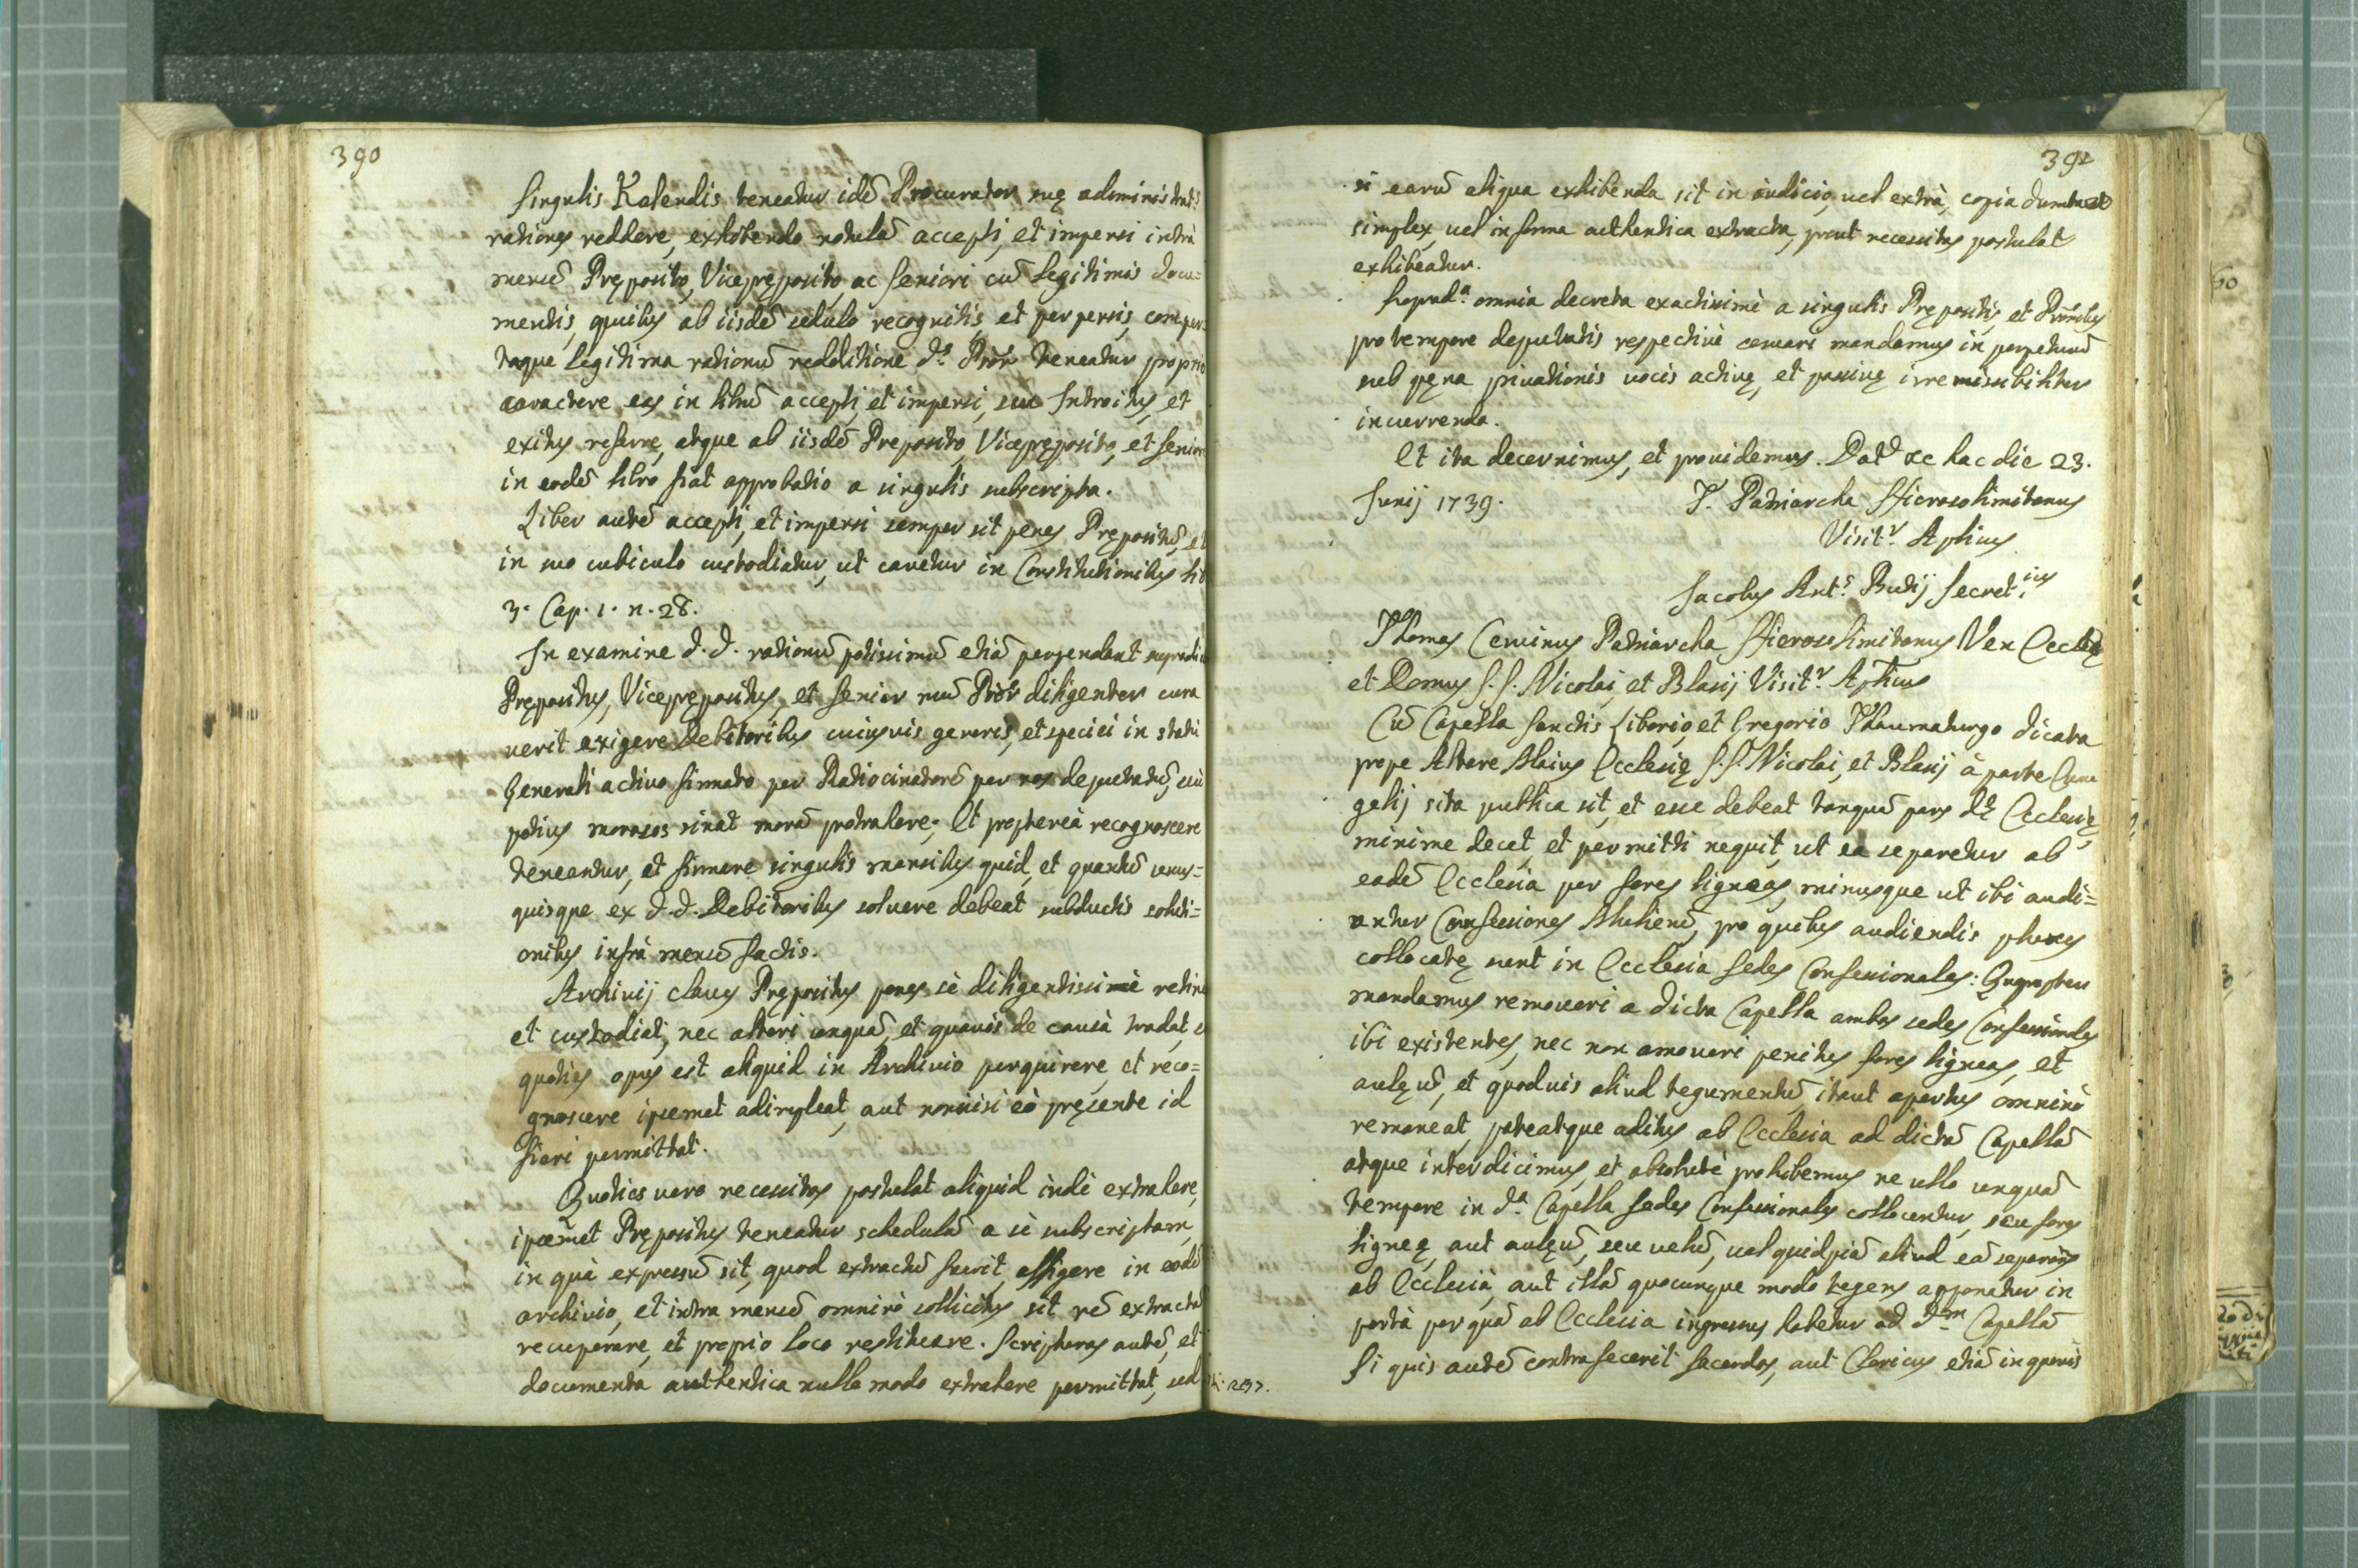 390
Singulis Kalendis teneatur idē Procurator suę administrat.
rationes reddere, exhibendo notulā accepti, et impensi intrà
mensē Pręposito, Vicepręposito, ac Seniori cū legitimis docu=
mentis, quibus ab iisdē sedulo recognitis, et perpensis, comper
taque legitima rationū redditione d.ͣ Prōr teneatur proprio
caractere eas in librū accepti, et impensi, seu Introitus, et
exitus referre, atque ab iisdē Preposito, Vicepręposito, et Senior
in eodē libro fiat approbatio a singulis subscripta.
Liber autē accepti, et impensi semper sit penes Prępositū, et
in suo cubiculo custodiatur, ut cavetur in Constitutionibus lib
3. Cap. 1. n. 28.
In examine d.d. rationū potissimū etiā perpendant supradic
Prępositus, Viceprępositus, et Senior num Prōr diligenter cura
uerit exigere Debitoribus cuiusvis generis, et speciei in statu
Generali activo firmato per Ratiocinatorē per nos deputatū, siu
potius morosos sinat morā protrahere; Et proptereà recognoscere
teneantur, et firmare singulis mensibus quid, et quantū unus=
quisque ex d.d. Debitoribus soluere debeat subductis soluti=
onibus infrà mensē factis.
Archivij claves Prępositus penes sè diligentissimè retine
et custodiat, nec alteri unquā, et quavis de causà tradat, e
quoties opus est aliquid in Archivio perquirere, et reco=
gnoscere ipsemet adimpleat, aut nonnisi eò pręsente id
fieri permittat.
Quoties vero necessitas postulat aliquid indè extrahere,
ipsemet Prępositus teneatur schedulā a sè subscriptam,
in quà expressū sit, quod extractū fuerit, affigere in eodē
archivio, et intra mensē omninò sollicitus sit rē extractā
recuperare, et proprio loco restituere. Scripturas autē, et
documenta authentica nullo modo extrahere permittat, sed
391
si earū aliqua exhibenda sit in iudicio, uel extrà, copia dumtaxat
simplex, uel in forma authentica extracta, prout necessitas postulat
exhibeatur.
Suprad.ͣ omnia decreta exactissimè a singulis Prępositis, et Prōribus
pro tempore deputatis respectivè servari mandamus in perpetuū
sub pęna privationis vocis activę, et passivę irremissibiliter
incurrenda.
Et ita decernimus, et providemus. Dat.ͭ xc hac die 23.
Junij 1739. T. Patriarcha Hierosolimitanus
Visit.ͬ Aplicus
Jacobus Ant.ˢ Budij Secret.ⁱᵘˢ
Thomas Cervinus Patriarcha Hierosolimitanus Ven Ecclesię
et Domus S.S. Nicolai, et Blasij Visit.ͬ Aplicus
Cū Capella Sanctis Liborio, et Gregorio Thaumaturgo dicata
prope Altare Maius Ecclesię S.S. Nicolai, et Blasij à parte Evan
gelij sita publica sit, et esse debeat tanquā pars d.ę Ecclesię
minime decet, et permitti nequit, ut ea separetur ab
eadē Ecclesia per fores ligneas, minusque ut ibi audi=
antur Confessiones Mulierū, pro quibus audiendis plures
collocatę sunt in Ecclesia Sedes Confessionales: Quapropter
mandamus removeri a dicta Capella ambas sedes Confessionales
ibi existentes, nec non amoueri penitus fores ligneas, et
aulęū, et quoduis aliud tegumentū, itaut apertus omninò
remaneat, pateatque aditus ab Ecclesia ad dictā Capellā
atque interdicimus, et absolutè prohibemus ne ullo unquā
tempore in d.ͣ Capella Sedes Confessionales collocentur, seu fores
ligneę, aut aulęū, seu velū, uel quidpiā aliud eā separans
ab Ecclesià, aut illā quocunque modo tegens apponatur in
portà per quā ab Ecclesia ingressus habetur ad d.ᵐ Capellā
Si quis autē contrafecerit Sacerdos, aut Clericus etiā in quovis